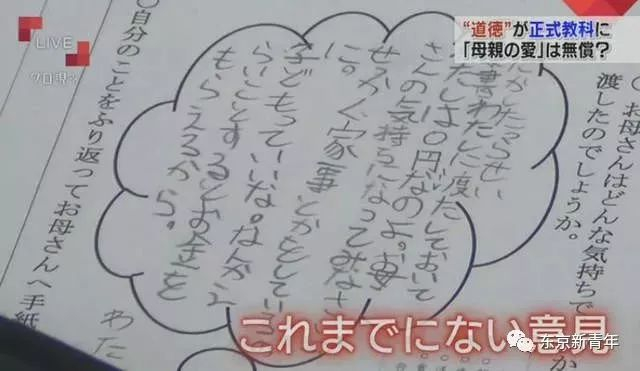 LIVE
クロ現+
“道徳”が正式教科に
「母親の愛」は無償?
お母さんはどんな気持ちで
渡したのでしょうか。
かしたらせい
書わたしに渡しておいて
たしは0円なのよ。お母
さんの気持ちになってみなさ
家事とかをしてい
子どもっていいな。なんかえ
らいことするとお金を
もらえるから。
〇自分のことをふり返ってお母さんへ手紙
わた
これまでにない意見
东京新青年